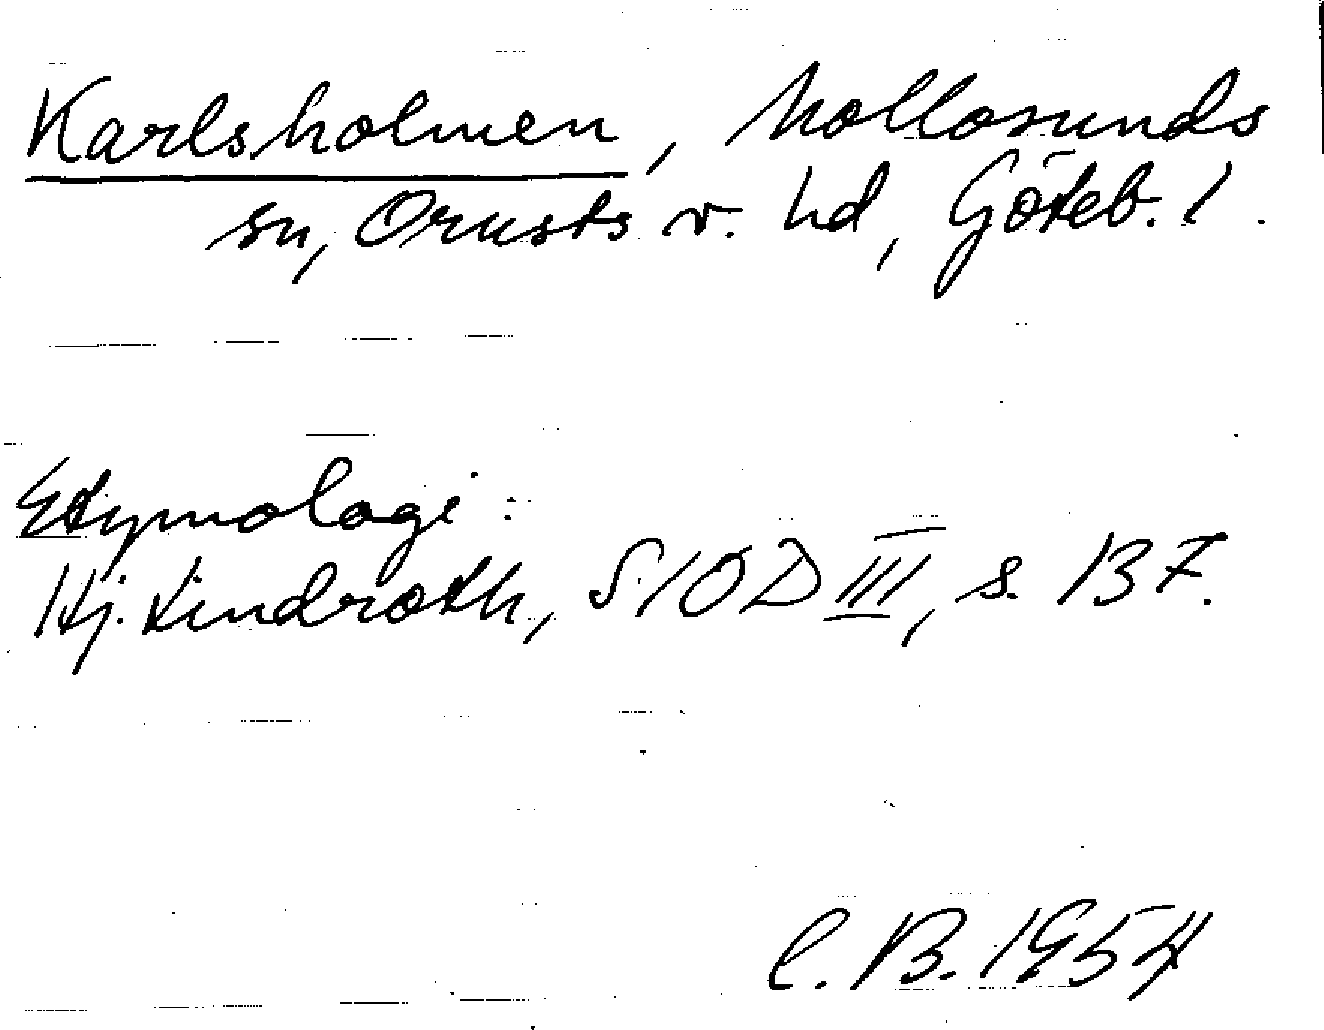 Karlsholmen, Mollösunds
sn, Orusts v. hd, Göteb. l.
Etymologi:
Hj. Lindroth, SIOD III, s. 137.
C.B. 1954